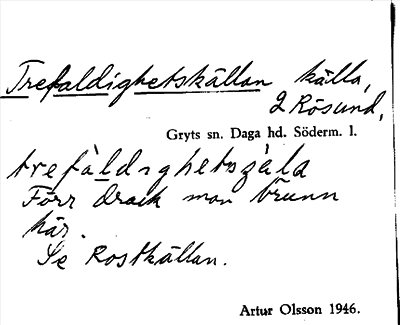 Trefaldighetskällan källa,
2 Rösund,
Gryts sn. Daga hd. Söderm. l.
trefàldighetsʒä́la
Förr drack man brunn
här.
Se Rostkällan.
Artur Olsson 1946.